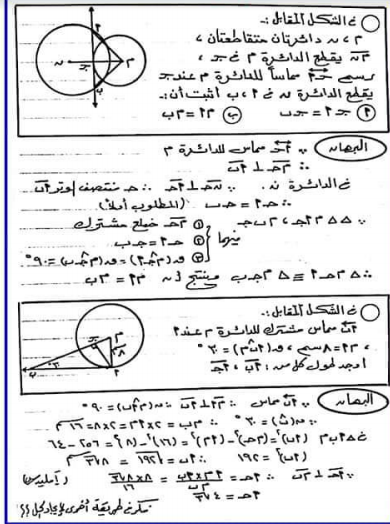 في الشكل المقابل :-
م ، ن دائرتان متقاطعتان ،
م ن يقطع الدائرة م في جـ ،
رسم جـ أ مماساً للدائرة م عند جـ
يقطع الدائرة ن في أ ، ب أثبت أن :-
① أ جـ = جـ ب ② م أ = م ب
البرهان ∵ أ جـ مماس للدائرة م
∴ م جـ ⊥ أ ب
في الدائرة ن ∵ ن جـ ⊥ أ جـ ∴ جـ منتصف الوتر أ ب
∴ أ جـ = جـ ب (المطلوب أولاً)
∵ △△ م أ جـ ، م ب جـ
فيهما
① م جـ ضلع مشترك
② جـ أ = جـ ب
③ ق(م جـ أ) = ق(م جـ ب) = ٩٠°
∴ △ م جـ أ ≡ △ م جـ ب وينتج أن م أ = م ب
في الشكل المقابل :-
أ ب مماس مشترك للدائرة م عند أ
، م أ = ٨ سم ، ق(أ ب م) = ٣٠°
أوجد طول كل من : أ ب ، أ جـ
البرهان ∵ أ ب مماس ∴ م أ ⊥ أ ب ∴ ق(م أ ب) = ٩٠°
∵ ق(ب) = ٣٠° ∴ م ب = ٢ × م أ = ٢ × ٨ = ١٦ سم
في △ أ ب م (أ ب)² = (م ب)² - (أ م)² = (١٦)² - (٨)² = ٢٥٦ - ٦٤
(أ ب)² = ١٩٢ ∴ أ ب = √١٩٢ = ٨√٣
∵ أ جـ ⊥ م ب ∴ أ جـ = م أ × أ ب / م ب = ٨ × ٨√٣ / ١٦
أ جـ = ٤√٣
فكر في طريقة أخرى لإيجاد الحل؟؟